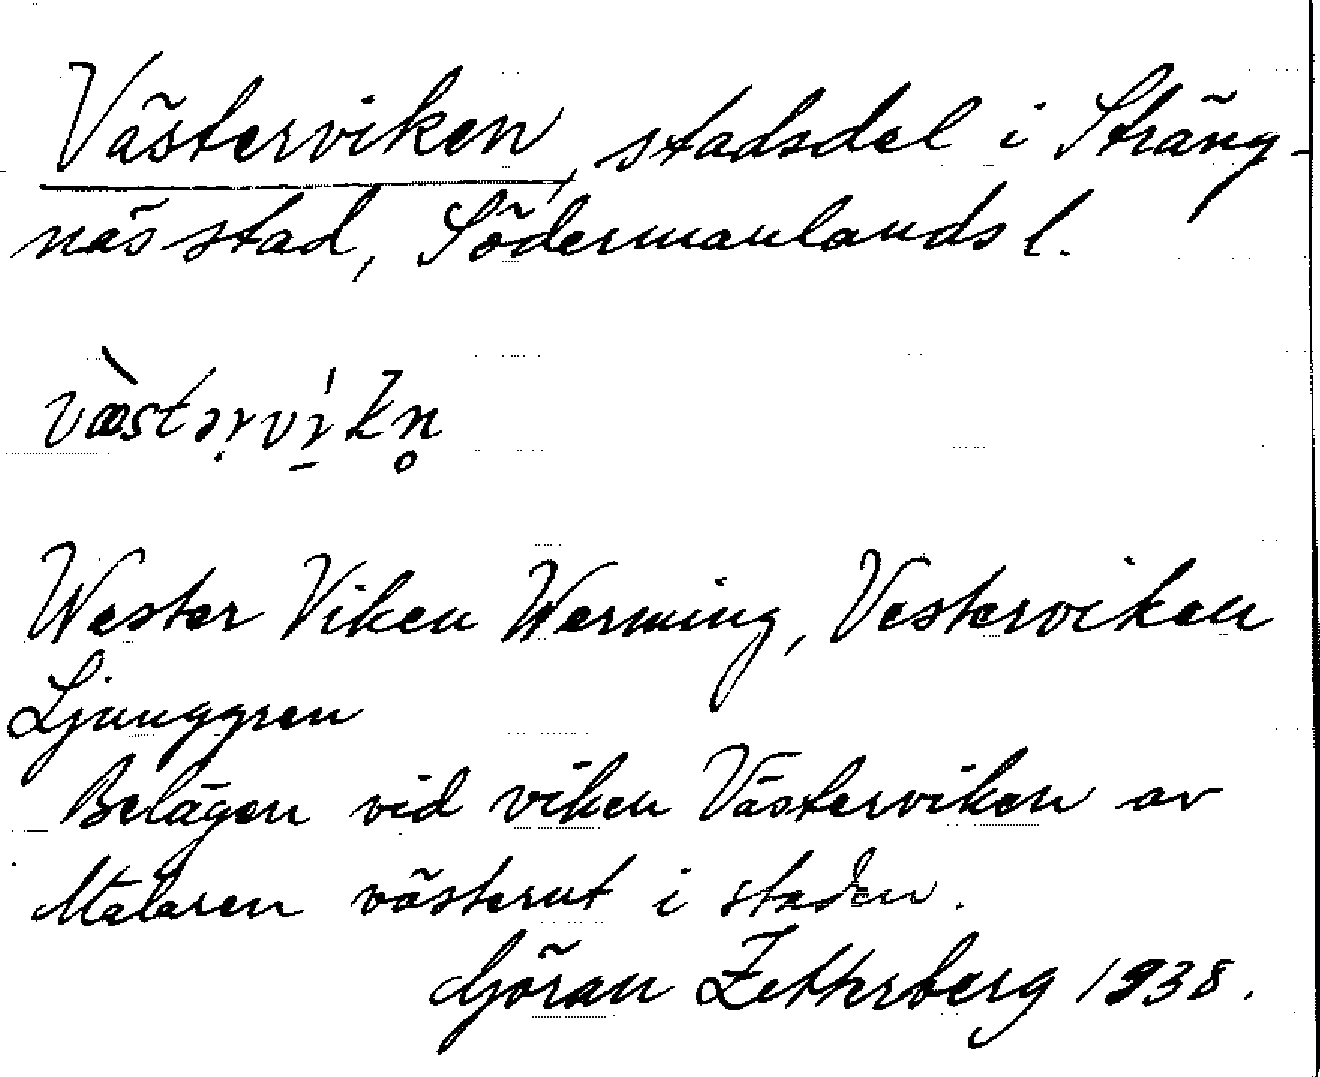 Västerviken, stadsdel i Sträng-
näs stad, Södermanlands l.
væ̀stəṛvı̱́kn̥
Wester Viken Werming, Vesterviken
Ljunggren
Belägen vid viken Västerviken av
Mälaren västerut i staden.
Göran Zetterberg 1938.